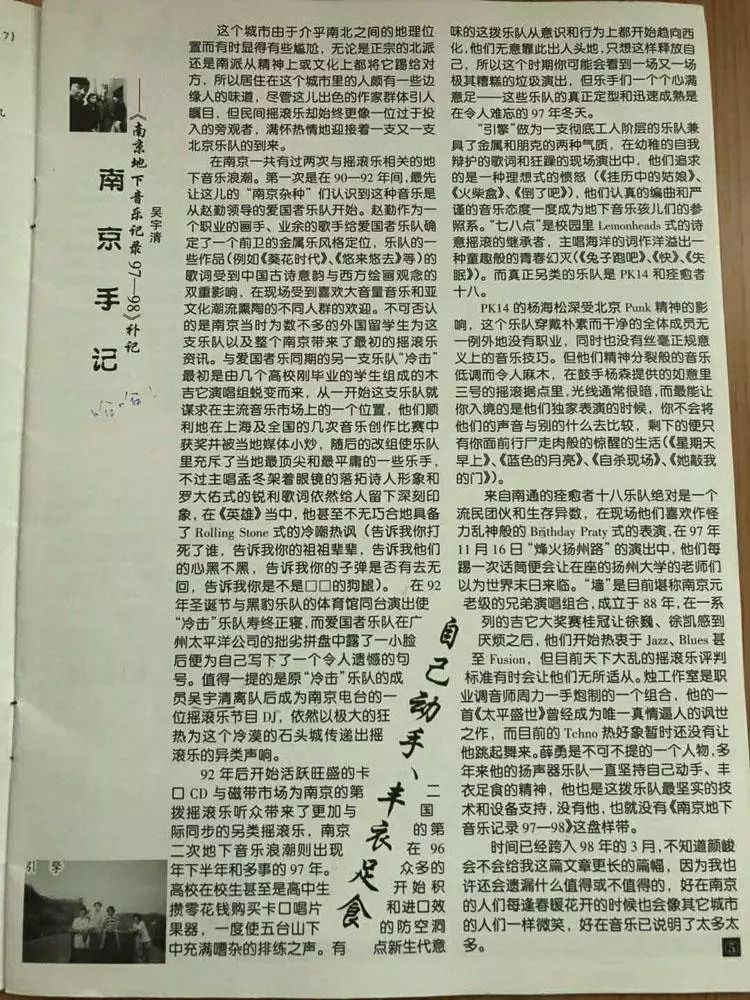 南京手记
——《南京地下音乐记录97—98》补记
吴宇清
这个城市由于介乎南北之间的地理位
置而有时显得有些尴尬，无论是正宗的北派
还是南派从精神上或文化上都将它踢给对
方，所以居住在这个城市里的人颇有一些边
缘人的味道，尽管这儿出色的作家群体引人
瞩目，但民间摇滚乐却始终更像一位过于投
入的旁观者，满怀热情地迎接着一支又一支
北京乐队的到来。
在南京一共有过两次与摇滚乐相关的地
下音乐浪潮。第一次是在90—92年间，最先
让这儿的“南京杂种”们认识到这种音乐是
从赵勤领导的爱国者乐队开始。赵勤作为一
个职业的画手、业余的歌手给爱国者乐队确
定了一个前卫的金属乐风格定位，乐队的一
些作品(例如《葵花时代》、《悠来悠去》等)的
歌词受到中国古诗意韵与西方绘画观念的
双重影响，在现场受到喜欢大音量音乐和亚
文化潮流熏陶的不同人群的欢迎。不可否认
的是南京当时为数不多的外国留学生为这
支乐队以及整个南京带来了最初的摇滚乐
资讯。与爱国者乐同期的另一支乐队“冷击”
最初是由几个高校刚毕业的学生组成的木
吉它演唱组蜕变而来，从一开始这支乐队就
谋求在主流音乐市场上的一个位置，他们顺
利地在上海及全国的几次音乐创作比赛中
获奖并被当地媒体小炒，随后的改组使乐队
里充斥了当地最顶尖和最平庸的一些乐手，
不过主唱孟冬架着眼镜的落拓诗人形象和
罗大佑式的锐利歌词依然给人留下深刻印
象，在《英雄》当中，他甚至不无巧合地具备
了 Rolling Stone 式的冷嘲热讽（告诉我你打
死了谁，告诉我你的祖祖辈辈，告诉我他们
的心黑不黑，告诉我你的子弹是否有去无
回，告诉我你是不是□□的狗腿）。 在92
年圣诞节与黑豹乐队的体育馆同台演出使
“冷击”乐队寿终正寝,而爱国者乐队在广
州太平洋公司的拙劣拼盘中露了一小脸
后便为自己写下了一个令人遗憾的句
号。值得一提的是原“冷击”乐队的成
员吴宇清离队后成为南京电台的一
位摇滚乐节目 DJ，依然以极大的狂
热为这个冷漠的石头城传递出摇
滚乐的异类声响。
92年后开始活跃旺盛的卡
口 CD 与磁带市场为南京的第二
拨摇滚乐听众带来了更加与国
际同步的另类摇滚乐，南京的第
二次地下音乐浪潮则出现在96
年下半年和多事的97年。众多的
高校在校生甚至是高中生开始积
攒零花钱购买卡口唱片和进口效
果器，一度使五台山下的防空洞
中充满嘈杂的排练之声。有点新生代意
自己动手、丰衣足食
引擎
味的这拨乐队从意识和行为上都开始趋向西
化，他们无意靠此出人头地，只想这样释放自
己，所以这个时期你可能会看到一场又一场
极其糟糕的垃圾演出，但乐手们一个个心满
意足——这些乐队的真正定型和迅速成熟是
在令人难忘的97年冬天。
“引擎”做为一支彻底工人阶层的乐队兼
具了金属和朋克的两种气质，在幼稚的自我
辩护的歌词和狂躁的现场演出中，他们追求
的是一种理想式的愤怒（《挂历中的姑娘》、
《火柴盒》、《倒了吧》），他们认真的编曲和严
谨的音乐态度一度成为地下音乐孩儿们的参
照系。“七八点”是校园里 Lemonheads 式的诗
意摇滚的继承者，主唱海洋的词作洋溢出一
种童趣般的青春幻灭（《兔子跑吧》、《快》、《失
眠》）。而真正另类的乐队是 PK14 和痊愈者
十八。
PK14 的杨海松深受北京 Punk 精神的影
响，这个乐队穿戴朴素而干净的全体成员无
一例外地没有职业，同时也没有丝毫正规意
义上的音乐技巧。但他们精神分裂般的音乐
低调而令人麻木，在鼓手杨森提供的如意里
三号的摇滚据点里，光线通常很暗，而最能让
你入境的是他们独家表演的时候，你不会将
他们的声音与别的什么去比较，剩下的便只
有你面前行尸走肉般的惊醒的生活(《星期天
早上》、《蓝色的月亮》、《自杀现场》、《她敲我
的门》)。
来自南通的痊愈者十八乐队绝对是一个
流民团伙和生存异数，在现场他们喜欢作怪
力乱神般的 Brithday Praty 式的表演，在97年
11月16日“烽火扬州路”的演出中，他们每
踢一次话筒便会让在座的扬州大学的老师们
以为世界末日来临。“墙”是目前堪称南京元
老级的兄弟演唱组合，成立于88年，在一系
列的吉它大奖赛桂冠让徐巍、徐凯感到
厌烦之后，他们开始热衷于 Jazz、Blues 甚
至 Fusion，但目前天下大乱的摇滚乐评判
标准有时会让他们无所适从。烛工作室是
职业调音师周力一手炮制的一个组合，他的一
首《太平盛世》曾经成为唯一真情逼人的讽世
之作，而目前的 Tchno 热好象暂时还没有让
他跳起舞来。薛勇是不可不提的一个人物，多
年来他的扬声器乐队一直坚持自己动手、丰
衣足食的精神，他也是这拨乐队最坚实的技
术和设备支持，没有他，也就没有《南京地下
音乐记录97—98》这盘样带。
时间已经跨入98年的3月，不知道颜峻
会不会给我这篇文章更长的篇幅，因为我也
许还会遗漏什么值得或不值得的，好在南京
的人们每逢春暖花开的时候也会像其它城市
的人们一样微笑，好在音乐已说明了太多太
多。
5